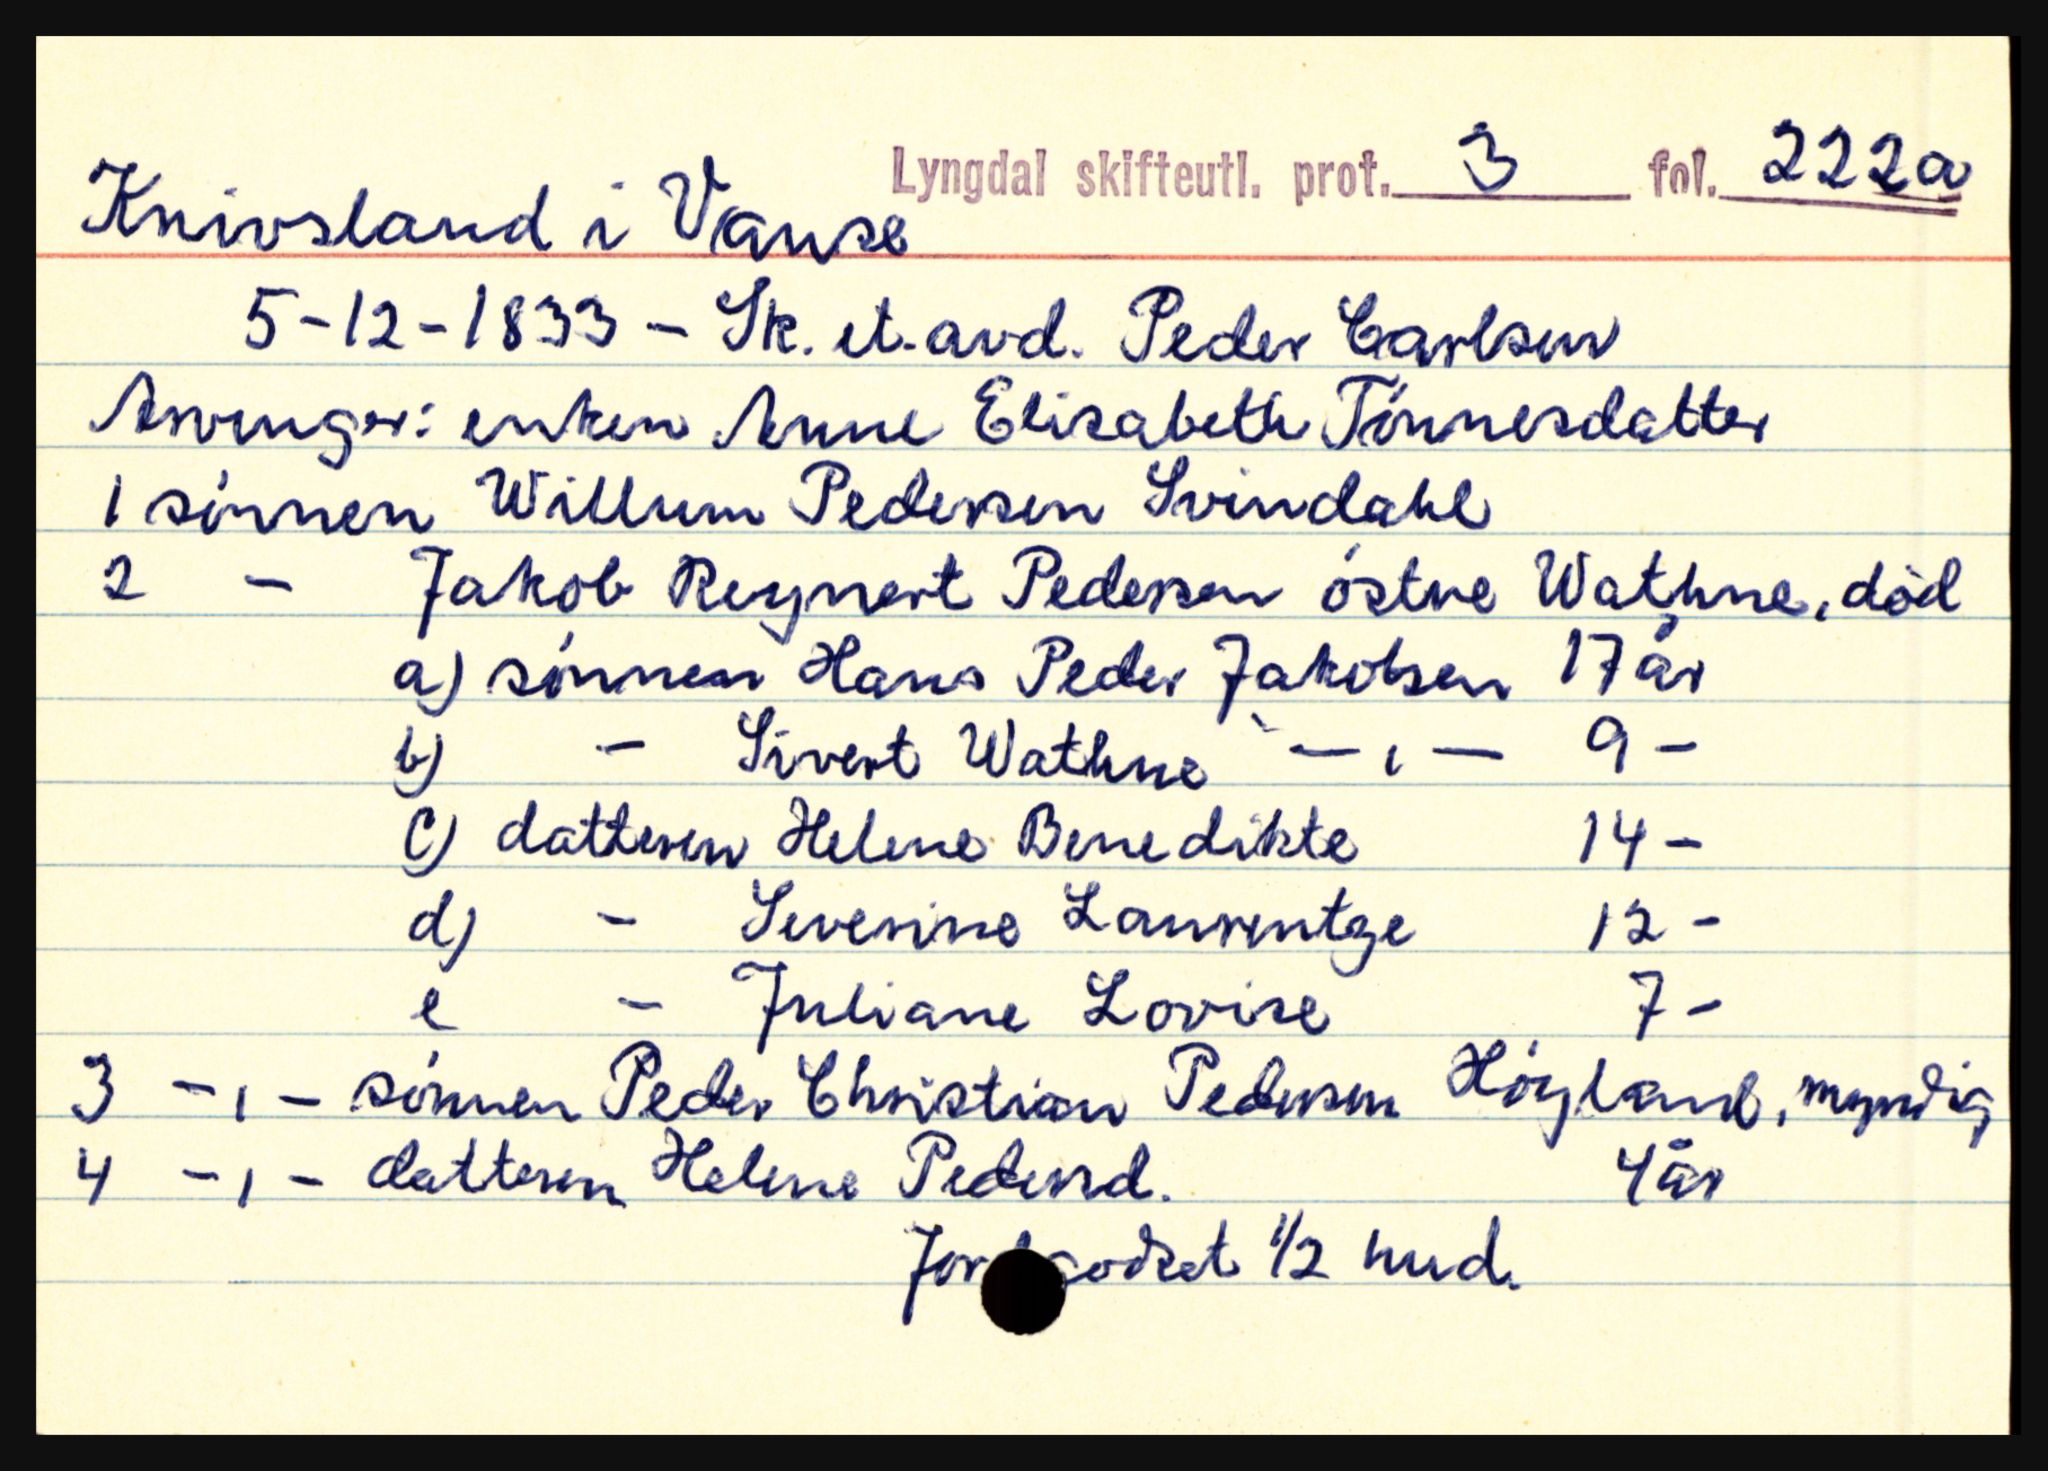 Lyngdal skifteutl. prot. 3 fol. 222a
Knivsland i Vanse
5-12-1833 - Sk. et. avd. Peder Carlsen
Arvinger: enken Anne Elisabeth Tónnesdatter
1 sónnen Willum Pedersen Svindahl
2 - Jakob Reynert Pedersen óstre Wathne, död
a) sónnen Hans Peder Jakobsen 17 år
b) - Sivert Wathne -"- 9 -
c) datteren Helene Benedikte 14 -
d) - Severine Laurentze 12 -
e - Juliane Lovise 7 -
3 -"- sónnen Peder Christian Pedersen Hóyland, myndig
4 -"- datteren Helene Pedersd. 4 år
Jordgodset 1/2 hud.